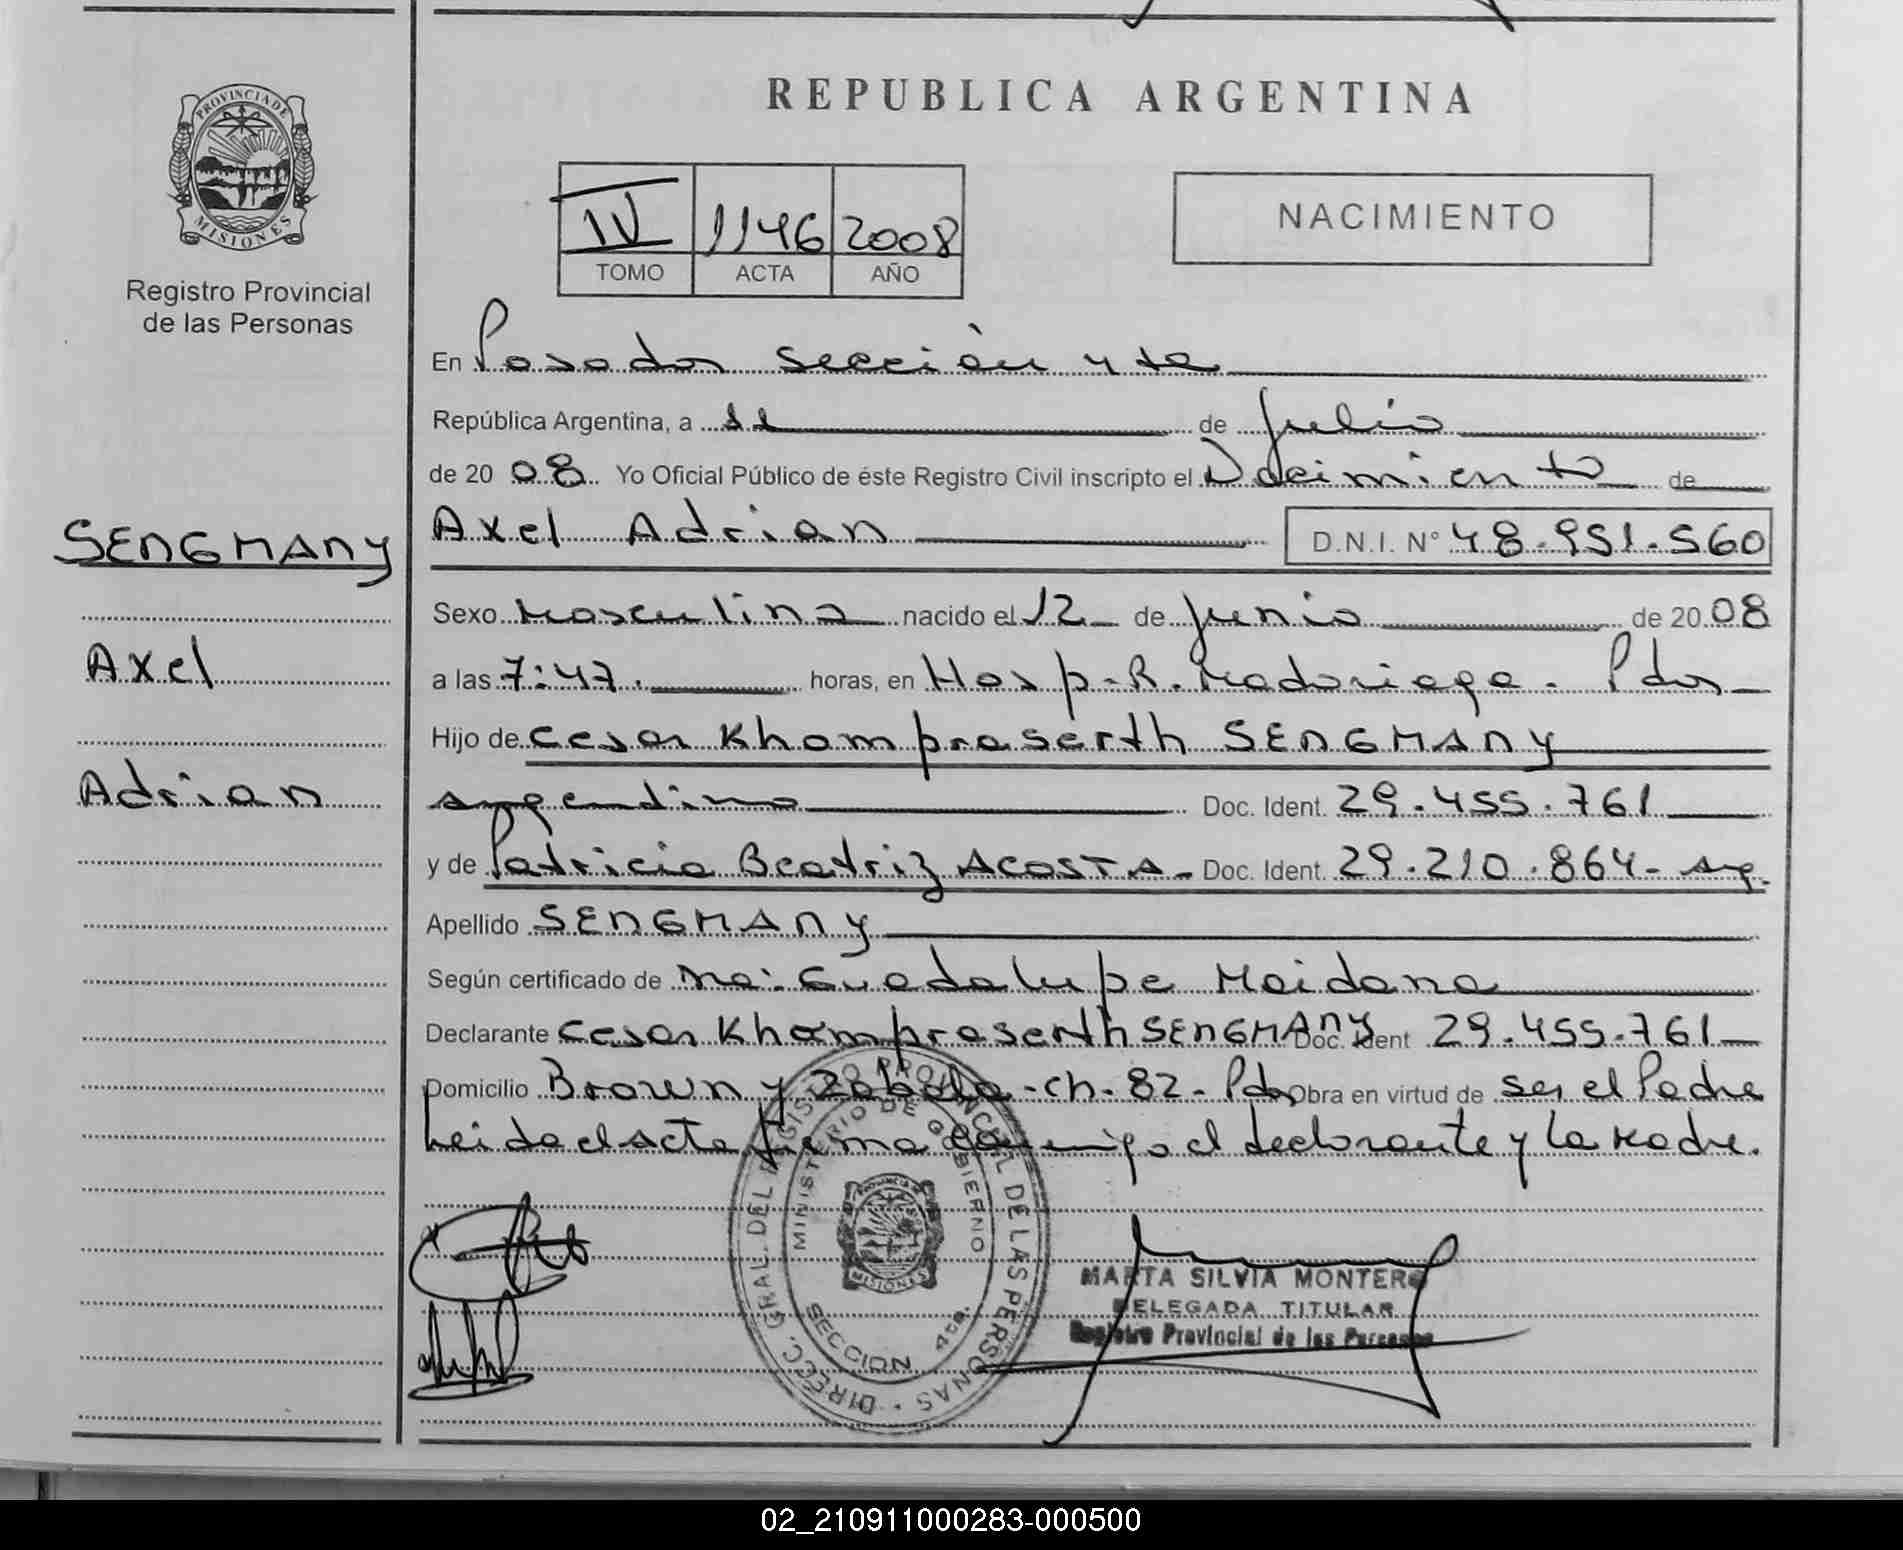 REPUBLICA ARGENTINA
PROVINCIA DE
MISIONES
Registro Provincial
de las Personas
IV 1146 2008
TOMO ACTA AÑO
NACIMIENTO
En Posadas sección 4 ta
República Argentina, a 11 de Julio
de 20 08 Yo Oficial Público de éste Registro Civil inscripto el Nacimiento de
SENGMANY
Axel Adrian D.N.I. N° 48.951.560
Sexo Masculino nacido el 12 de Junio de 20 08
Axel
a las 7:47. horas, en Hosp. R. Madariaga. Pdas
Hijo de Cesar Khompraserth SENGMANY
Adrian
argentino Doc. Ident. 29.455.761
y de Patricia Beatriz ACOSTA - Doc. Ident. 29.210.864 - arg.
Apellido SENGMANY
Según certificado de Ma. Guadalupe Maidana
Declarante Cesar Khompraserth SENGMANY Doc. Ident 29.455.761
Domicilio Brown y Zabala - Ch. 82 - Pdas Obra en virtud de ser el Padre
Leida el acta firma conmigo el declarante y la Madre.
DIRECC. GRAL. DEL REGISTRO PROVINCIAL DE LAS PERSONAS
MINISTERIO DE GOBIERNO
PROVINCIA DE
MISIONES
SECCION 4ta.
MARTA SILVIA MONTERO
DELEGADA TITULAR
Registro Provincial de las Personas
02_210911000283-000500